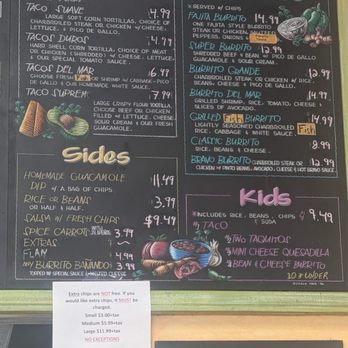 TACO SUAVE 4.99
LARGE SOFT CORN TORTILLAS, CHOICE OF
CHARBROILED STEAK OR CHICKEN W/ CHEESE,
LETTUCE, & PICO DE GALLO.
TACOS DUROS! 4.99
HARD SHELL CORN TORTILLA, CHOICE OF MEAT
OR CHICKEN (SHREDDED) W/ CHEESE, LETTUCE,
& OUR SPECIAL TOMATO SAUCE.
TACOS DEL MAR 6.99
CHOOSE FRESH Fish OR SHRIMP W/ CABBAGE, PICO
DE GALLO, & PICO MAHONAISE WHITE SAUCE.
TACO SUPREMO 7.99
LARGE CRISPY FLOUR TORTILLA,
CHOOSE BEEF OR CHICKEN,
FILLED W/ LETTUCE, CHEESE,
SOUR CREAM & OUR FRESH
GUACAMOLE.
Sides
HOMEMADE GUACAMOLE 11.49
DIP W/ A BAG OF CHIPS
RICE OR BEANS 3.99
OR HALF & HALF.
SALSA W/ FRESH CHIPS $9.49
SPICE CARROTS 3.99
EXTRAS ~
FLAN 4.99
ANY BURRITO BAÑADO 3.99
TOPPED W/ SPECIAL SAUCE & MELTED CHEESE
* SERVED W/ CHIPS
FAJITA BURRITO 14.99
ONE FAJITA STYLE BURRITO
STEAK OR CHICKEN, SAUTEED
PEPPERS, ONIONS &
SUPER BURRITO 12.99
SHREDDED BEEF W/ PICO DE GALLO,
SOUR CREAM & CHEESE
BURRITO GRANDE 12.99
CHARBROILED STEAK OR CHICKEN W/
RICE, BEANS, CHEESE, LETTUCE
& PICO DE GALLO.
BURRITO DEL MAR 14.99
GRILLED SHRIMP, RICE, TOMATO, CHEESE &
SLICES OF AVOCADO.
GRILLED Fish BURRITO 14.99
LIGHTLY SEASONED CHARBROILED Fish
RICE, CABBAGE & WHITE SAUCE
CLASSIC BURRITO 8.99
RICE, BEANS & CHEESE.
BRAVO BURRITO 12.99
CHARBROILED STEAK OR
CHICKEN W/ PINTO BEANS, AVOCADO, CHEESE & HOT BRAVO SAUCE
Kids
*INCLUDES RICE, BEANS, CHIPS & SODA 9.49
1/ TACO
2/ TWO TAQUITOS
3/ MINI CHEESE QUESADILLA
4/ BEAN & CHEESE BURRITO
10 & UNDER
Extra chips are NOT free. If you
would like extra chips, it MUST be
charged.
Small $3.00+tax
Medium $5.99+tax
Large $11.99+tax
NO EXCEPTIONS